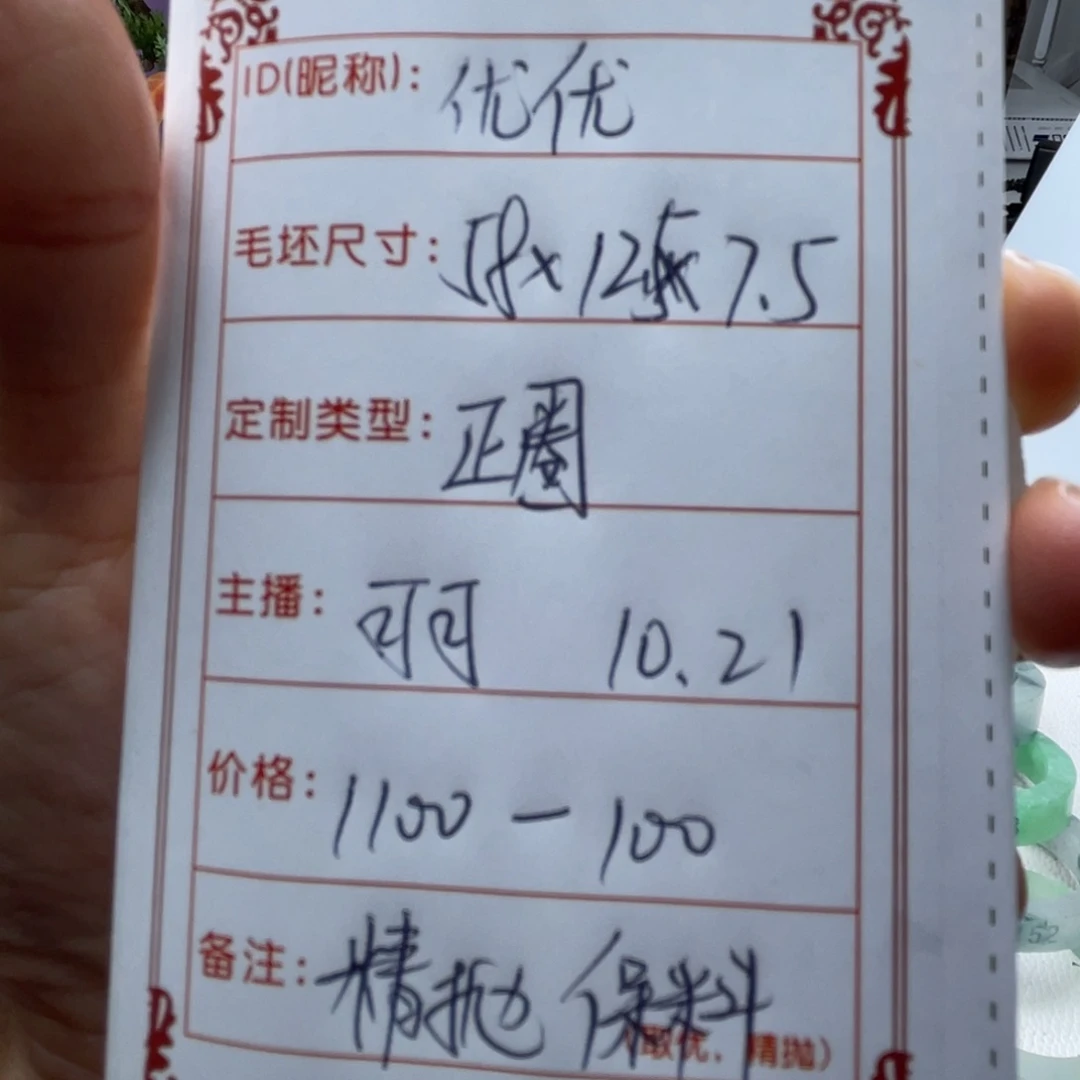 ID(昵称): 优优
毛坯尺寸: 58x12.5x7.5
定制类型: 正圈
主播: 可可 10.21
价格: 1100-100
备注: 精抛 保料
精抛)
52